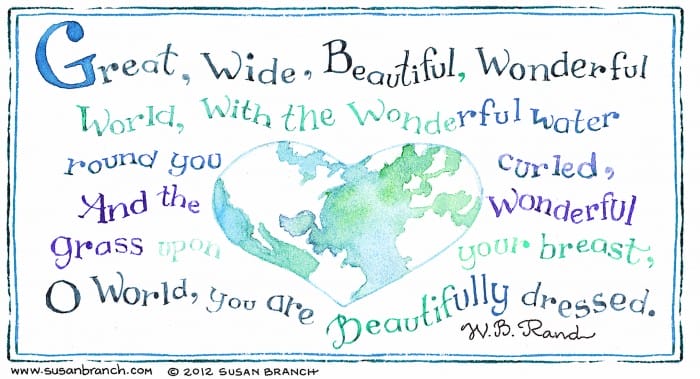 Great, Wide, Beautiful, Wonderful
World, With the Wonderful water
round you curled,
And the Wonderful
grass upon your breast,
O World, you are Beautifully dressed.
W.B. Rand
www.susanbranch.com © 2012 SUSAN BRANCH